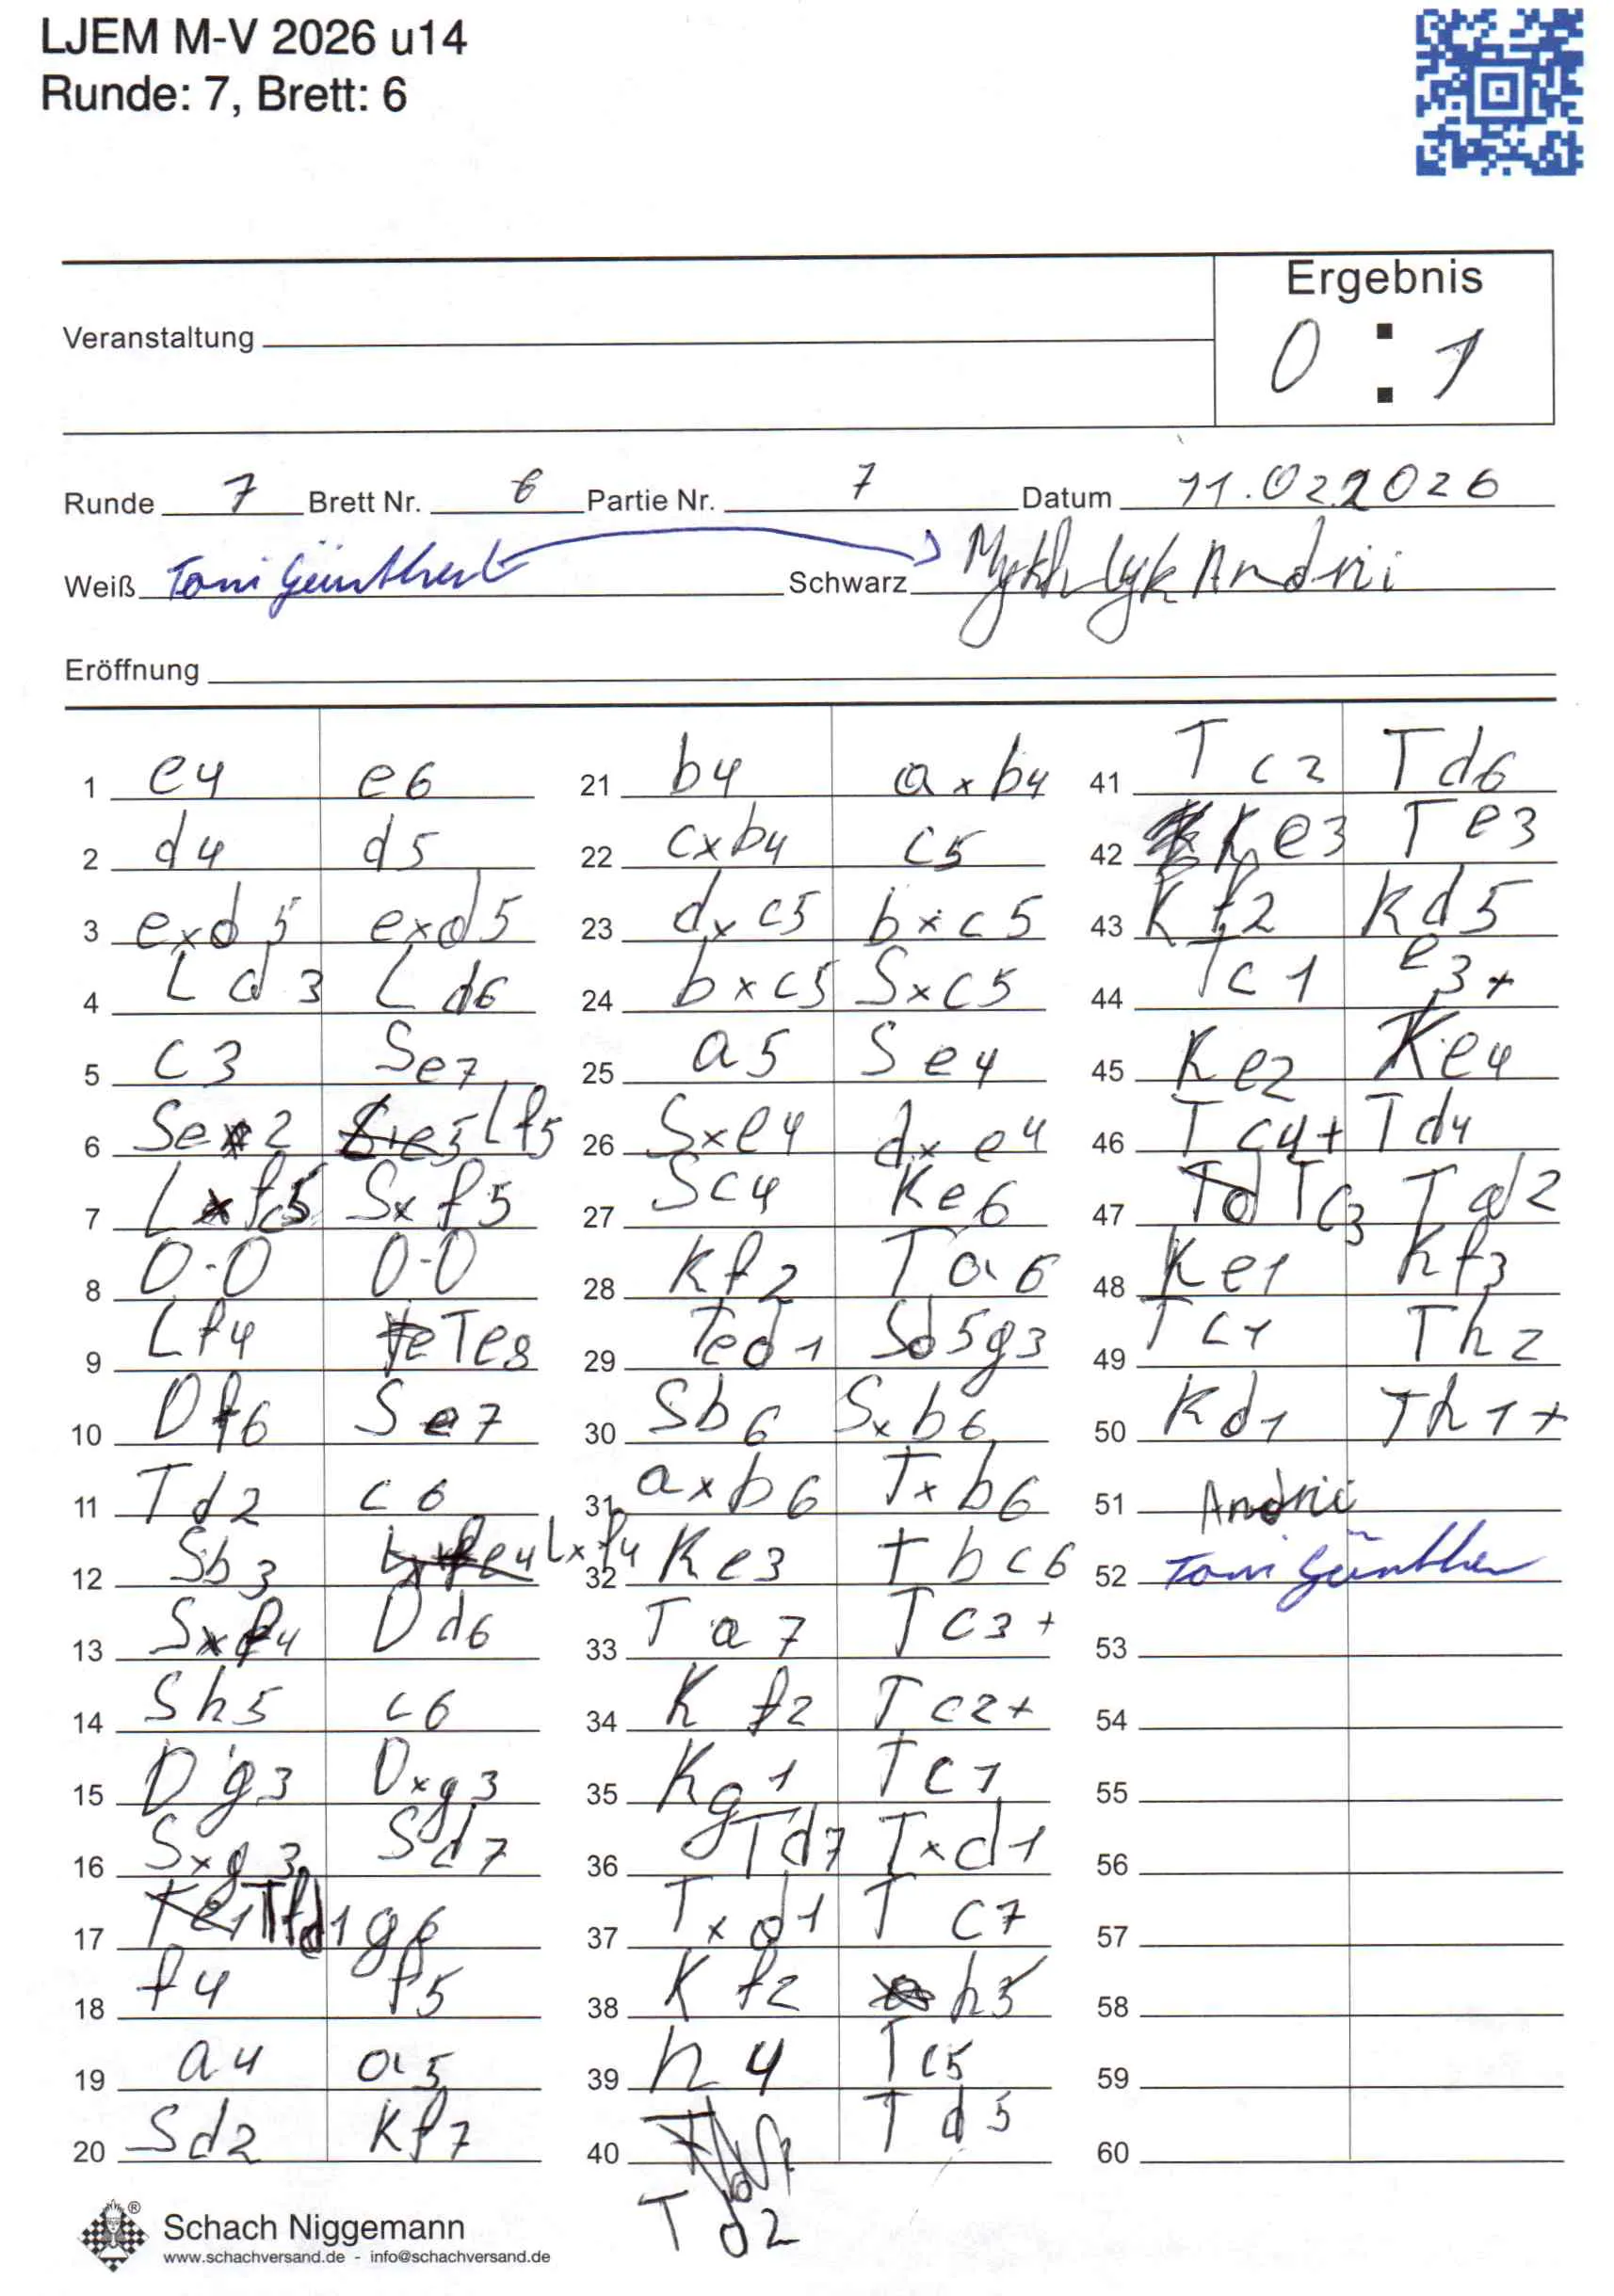 LJEM M-V 2026 u14
Runde: 7, Brett: 6
Ergebnis
Veranstaltung
0 : 1
Runde 7 Brett Nr. 6 Partie Nr. 7 Datum 11.02.2026
Weiß Toni Günther Schwarz Andrii
Eröffnung
1 e4 e6
2 d4 d5
3 exd5 exd5
4 Ld3 Ld6
5 c3 Se7
6 Se2 Lf5
7 Lxf5 Sxf5
8 0-0 0-0
9 Lf4 Te8
10 Df6 Se7
11 Td2 c6
12 Sb3 Lxf4
13 Sxf4 Dd6
14 Sh5 c6
15 Dg3 Dxg3
16 Sxg3 Sd7
17 Tfd1 g6
18 f4 f5
19 a4 a5
20 Sd2 Kf7
21 b4 axb4
22 cxb4 c5
23 dxc5 bxc5
24 bxc5 Sxc5
25 a5 Se4
26 Sxe4 dxe4
27 Sc4 Ke6
28 Kf2 Ta6
29 Ted1 Sd5g3
30 Sb6 Sxb6
31 axb6 Txb6
32 Ke3 Tbc6
33 Ta7 Tc3+
34 Kf2 Tc2+
35 Kg1 Tc1
36 Td7 Txd1
37 Txd1 Tc7
38 Kf2 h5
39 h4 Tc5
40 Td2 Td5
41 Tc2 Td6
42 Ke3 Te3
43 Kf2 Kd5
44 Tc1 e3+
45 Ke2 Ke4
46 Tc4+ Td4
47 Tc3 Td2
48 Ke1 Kf3
49 Tc1 Th2
50 Kd1 Th1+
51 Andrii
52 Toni Günther
53
54
55
56
57
58
59
60
Schach Niggemann
www.schachversand.de - info@schachversand.de